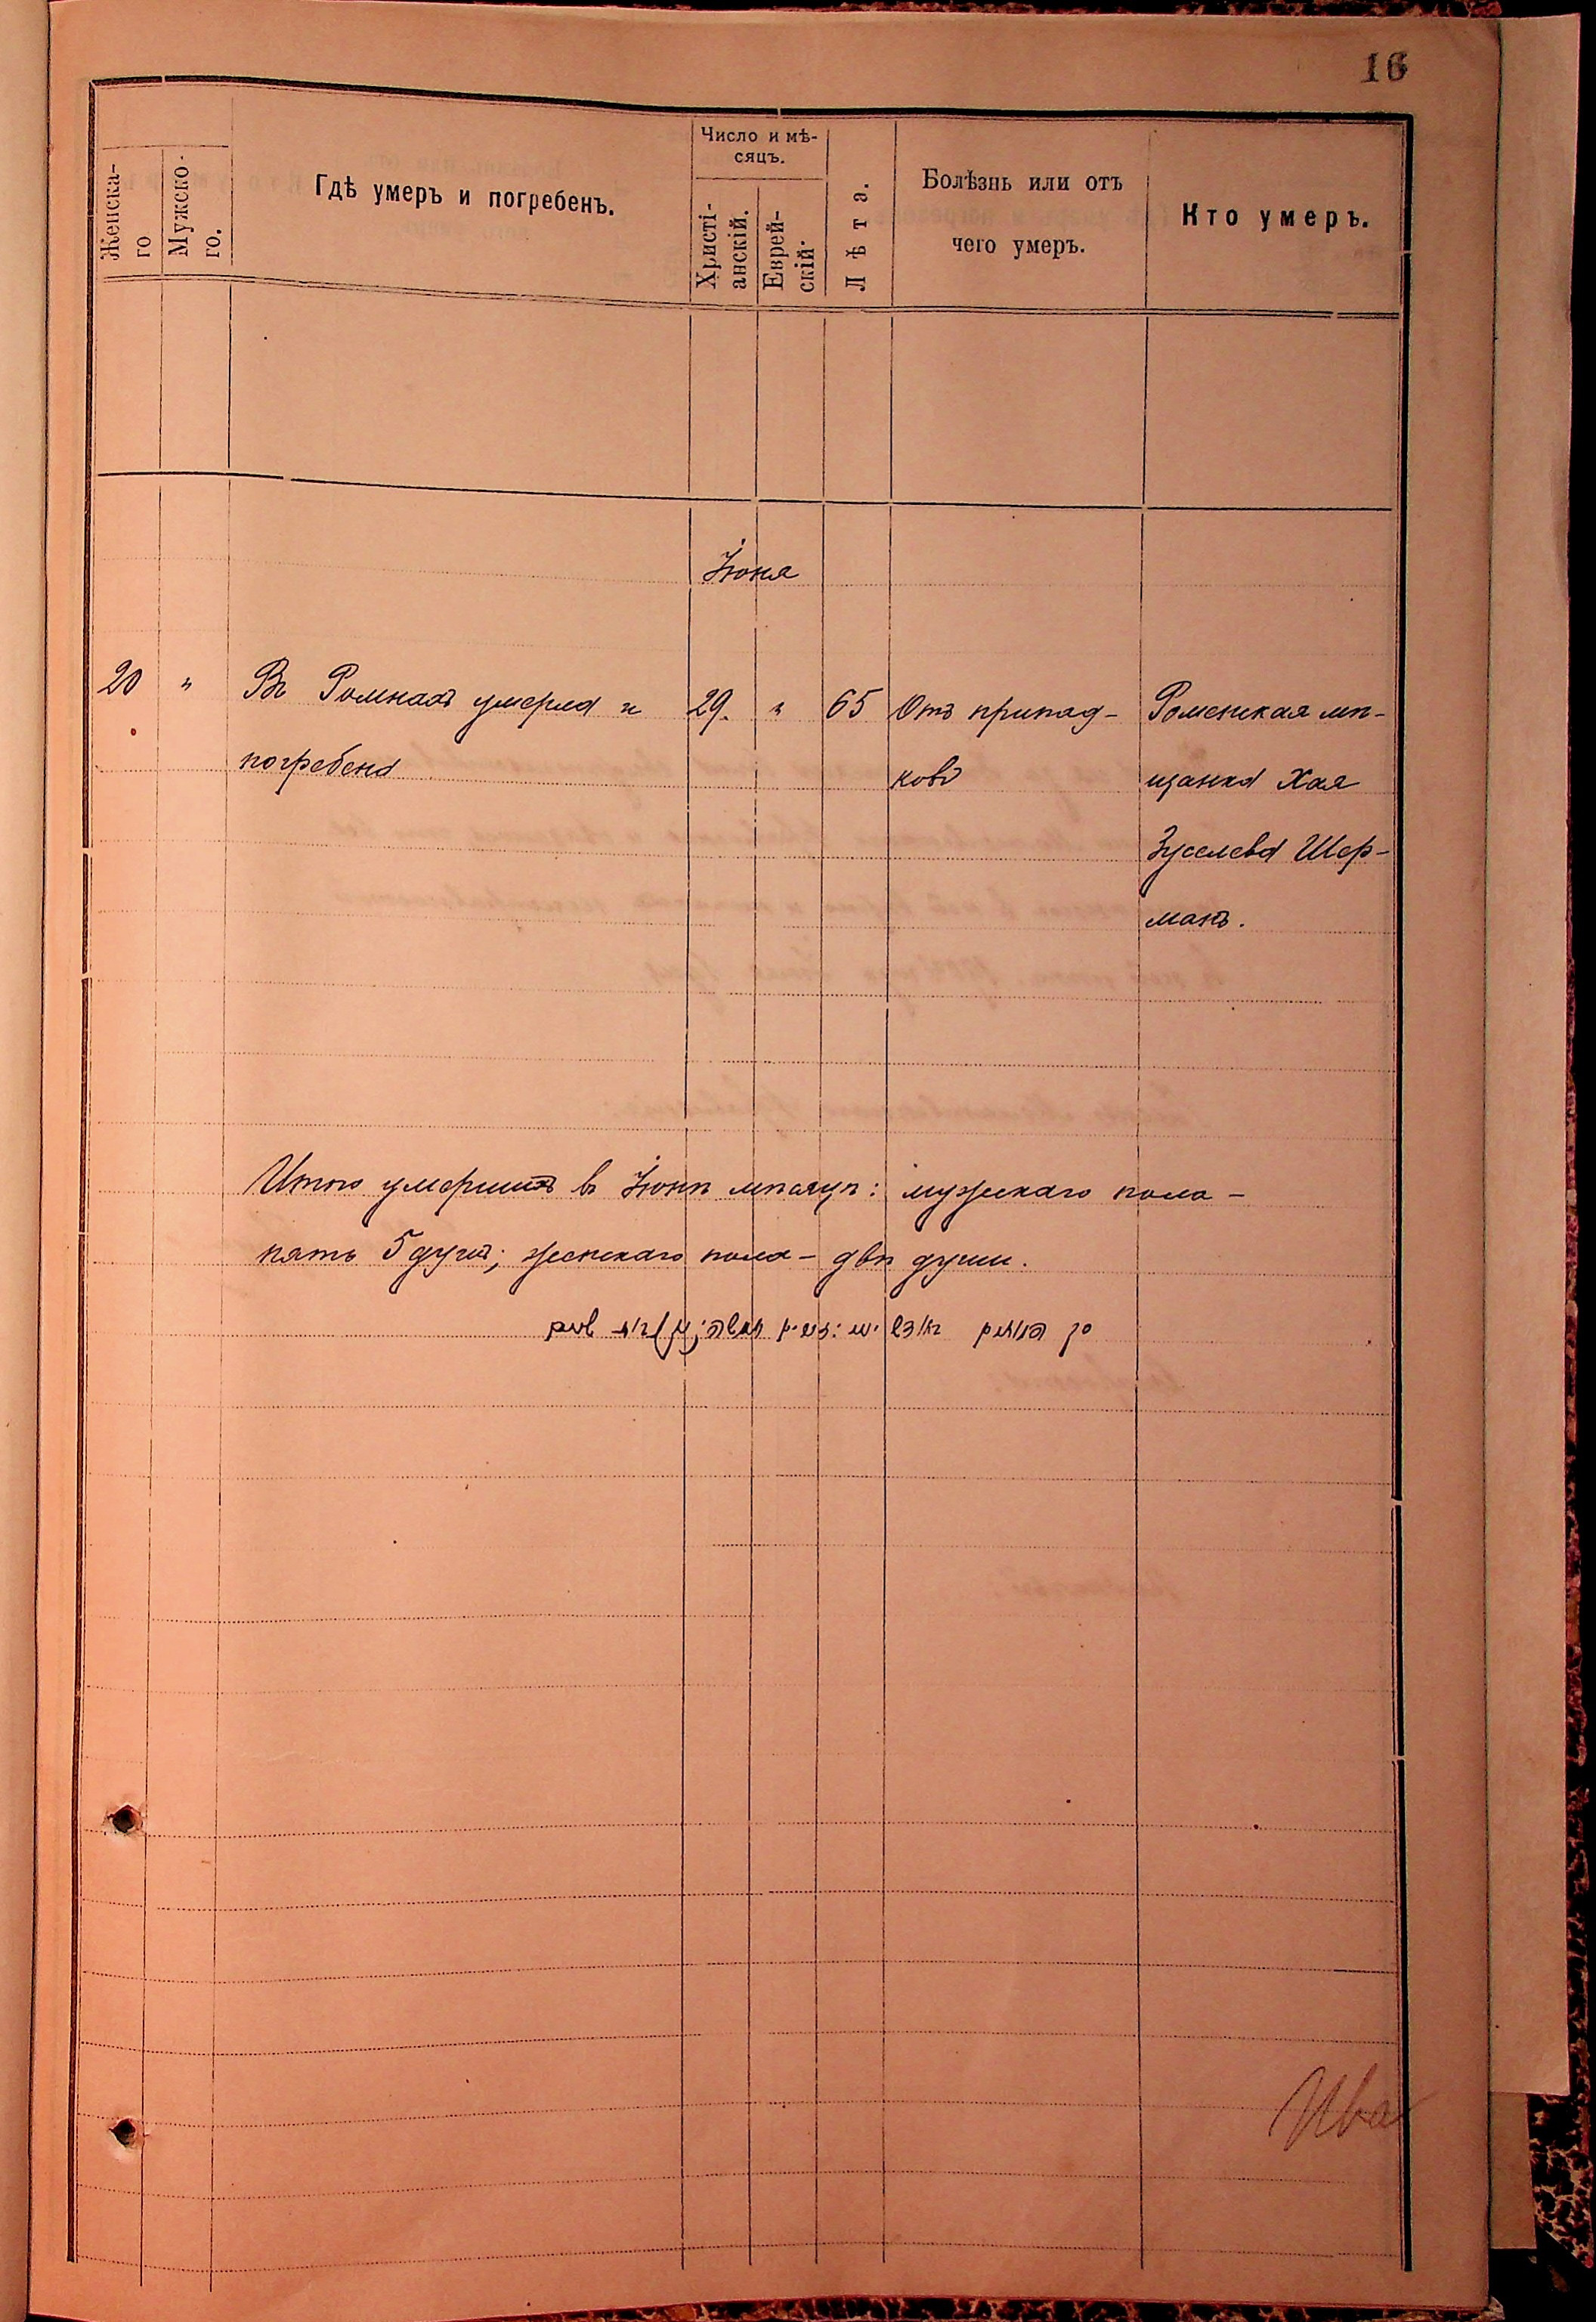 16
Женска-
го
Мужско-
го.
Гдѣ умеръ и погребенъ.
Число и мѣ-
сяцъ.
Христі-
анскій.
Еврей-
скій.
Лѣта.
Болѣзнь или отъ
чего умеръ.
Кто умеръ.
Іюня
20 " Въ Ромнахъ умерла и 29. " 65 Отъ припад- Роменская мѣ-
погребена ковъ щанка Хая
Зуселева Шер-
манъ.
Итого умершихъ въ Іюнѣ мѣсяцѣ: мужскаго пола -
пять 5 душъ; женскаго пола - двѣ души.
Ива